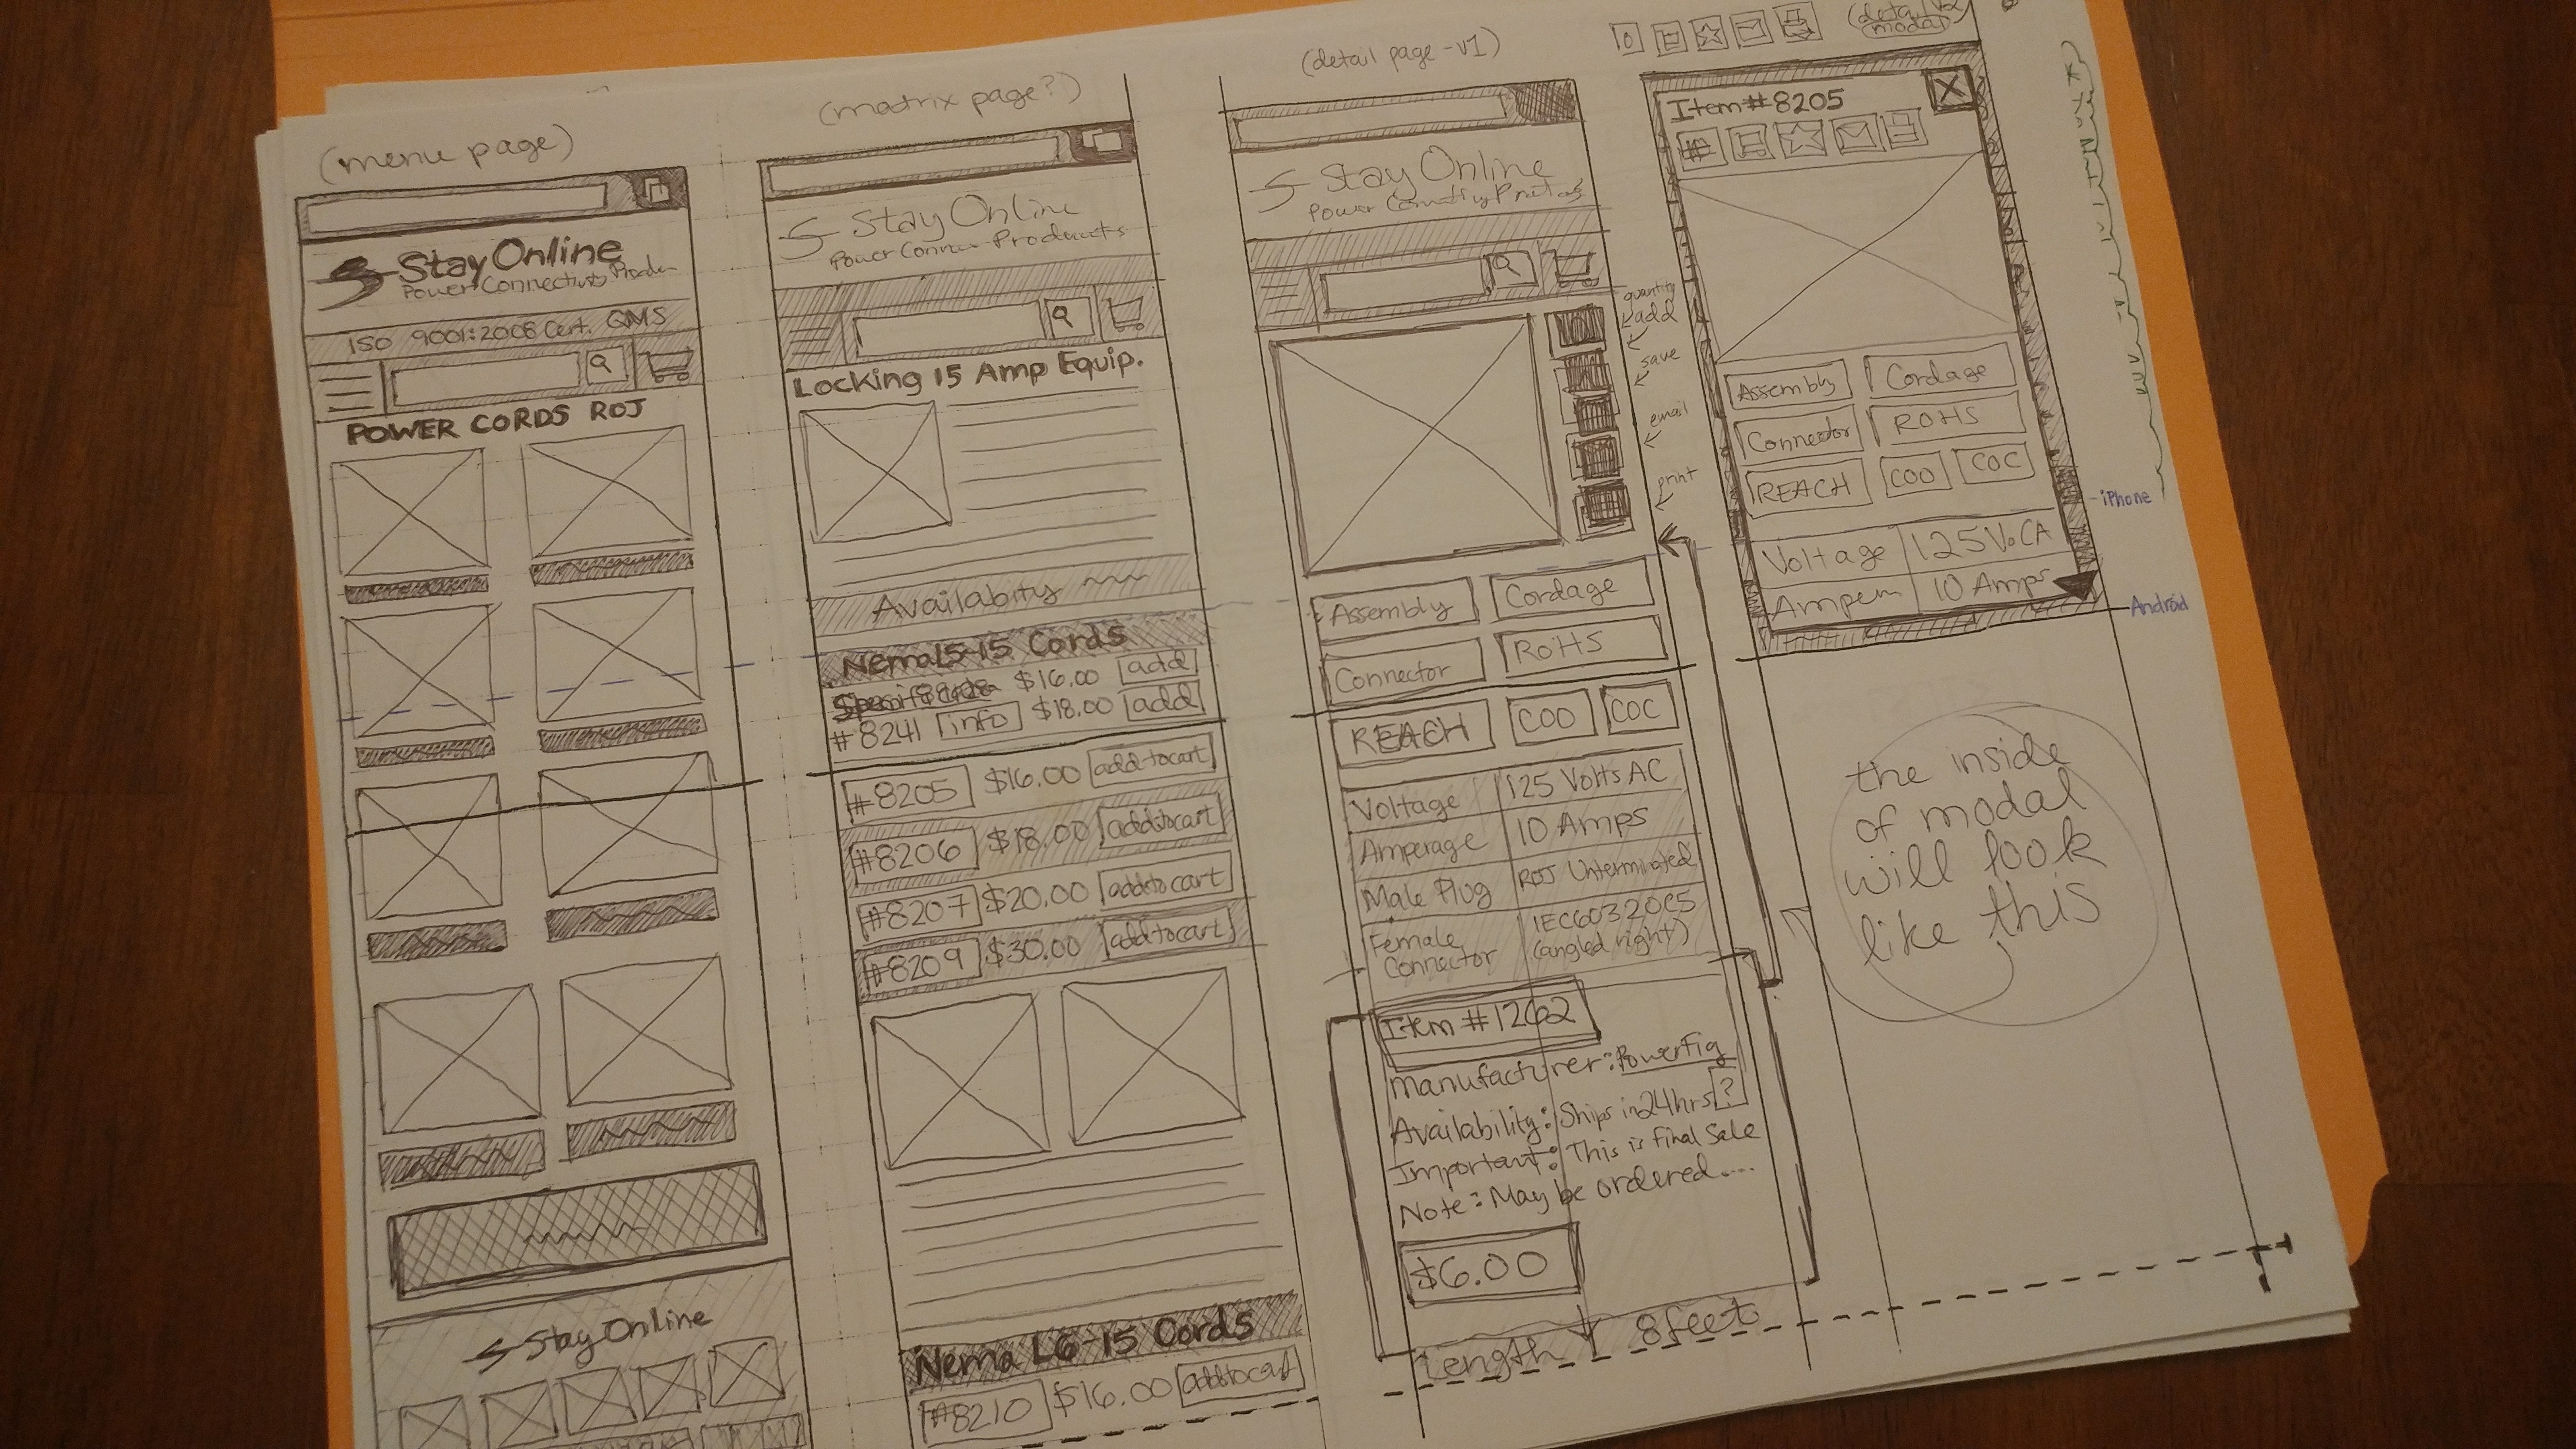 (menu page)
StayOnline
Power Connectivity
ISO 9001:2008 Cert. QMS
POWER CORDS ROJ
StayOnline
(matrix page?)
StayOnline
Power Products
Locking 15 Amp Equip.
Availabity
Nema L5-15 Cords
$16.00 add
#8241 info $18.00 add
#8205 $16.00 add to cart
#8206 $18.00 add to cart
#8207 $20.00 add to cart
#8209 $30.00 add to cart
Nema L6-15 Cords
#8210 $16.00 add to cart
(detail page - v1)
StayOnline
Power
quantity
add
save
email
print
Assembly Cordage
Connector RoHS
REACH COO COC
Voltage 125 Volts AC
Amperage 10 Amps
Male Plug ROJ Unterminated
Female Connector IEC60320C5
(angled right)
Item #1262
Manufacturer: Powerfig
Availability: Ships in 24hrs ?
Important: This is final sale
Note: May be ordered....
$6.00
Length 8 feet
(detail v2
modal)
Item# 8205
X
Assembly Cordage
Connector ROHS
REACH COO COC
Voltage 125
10 Amps
iPhone
Android
the inside
of modal
will look
like this